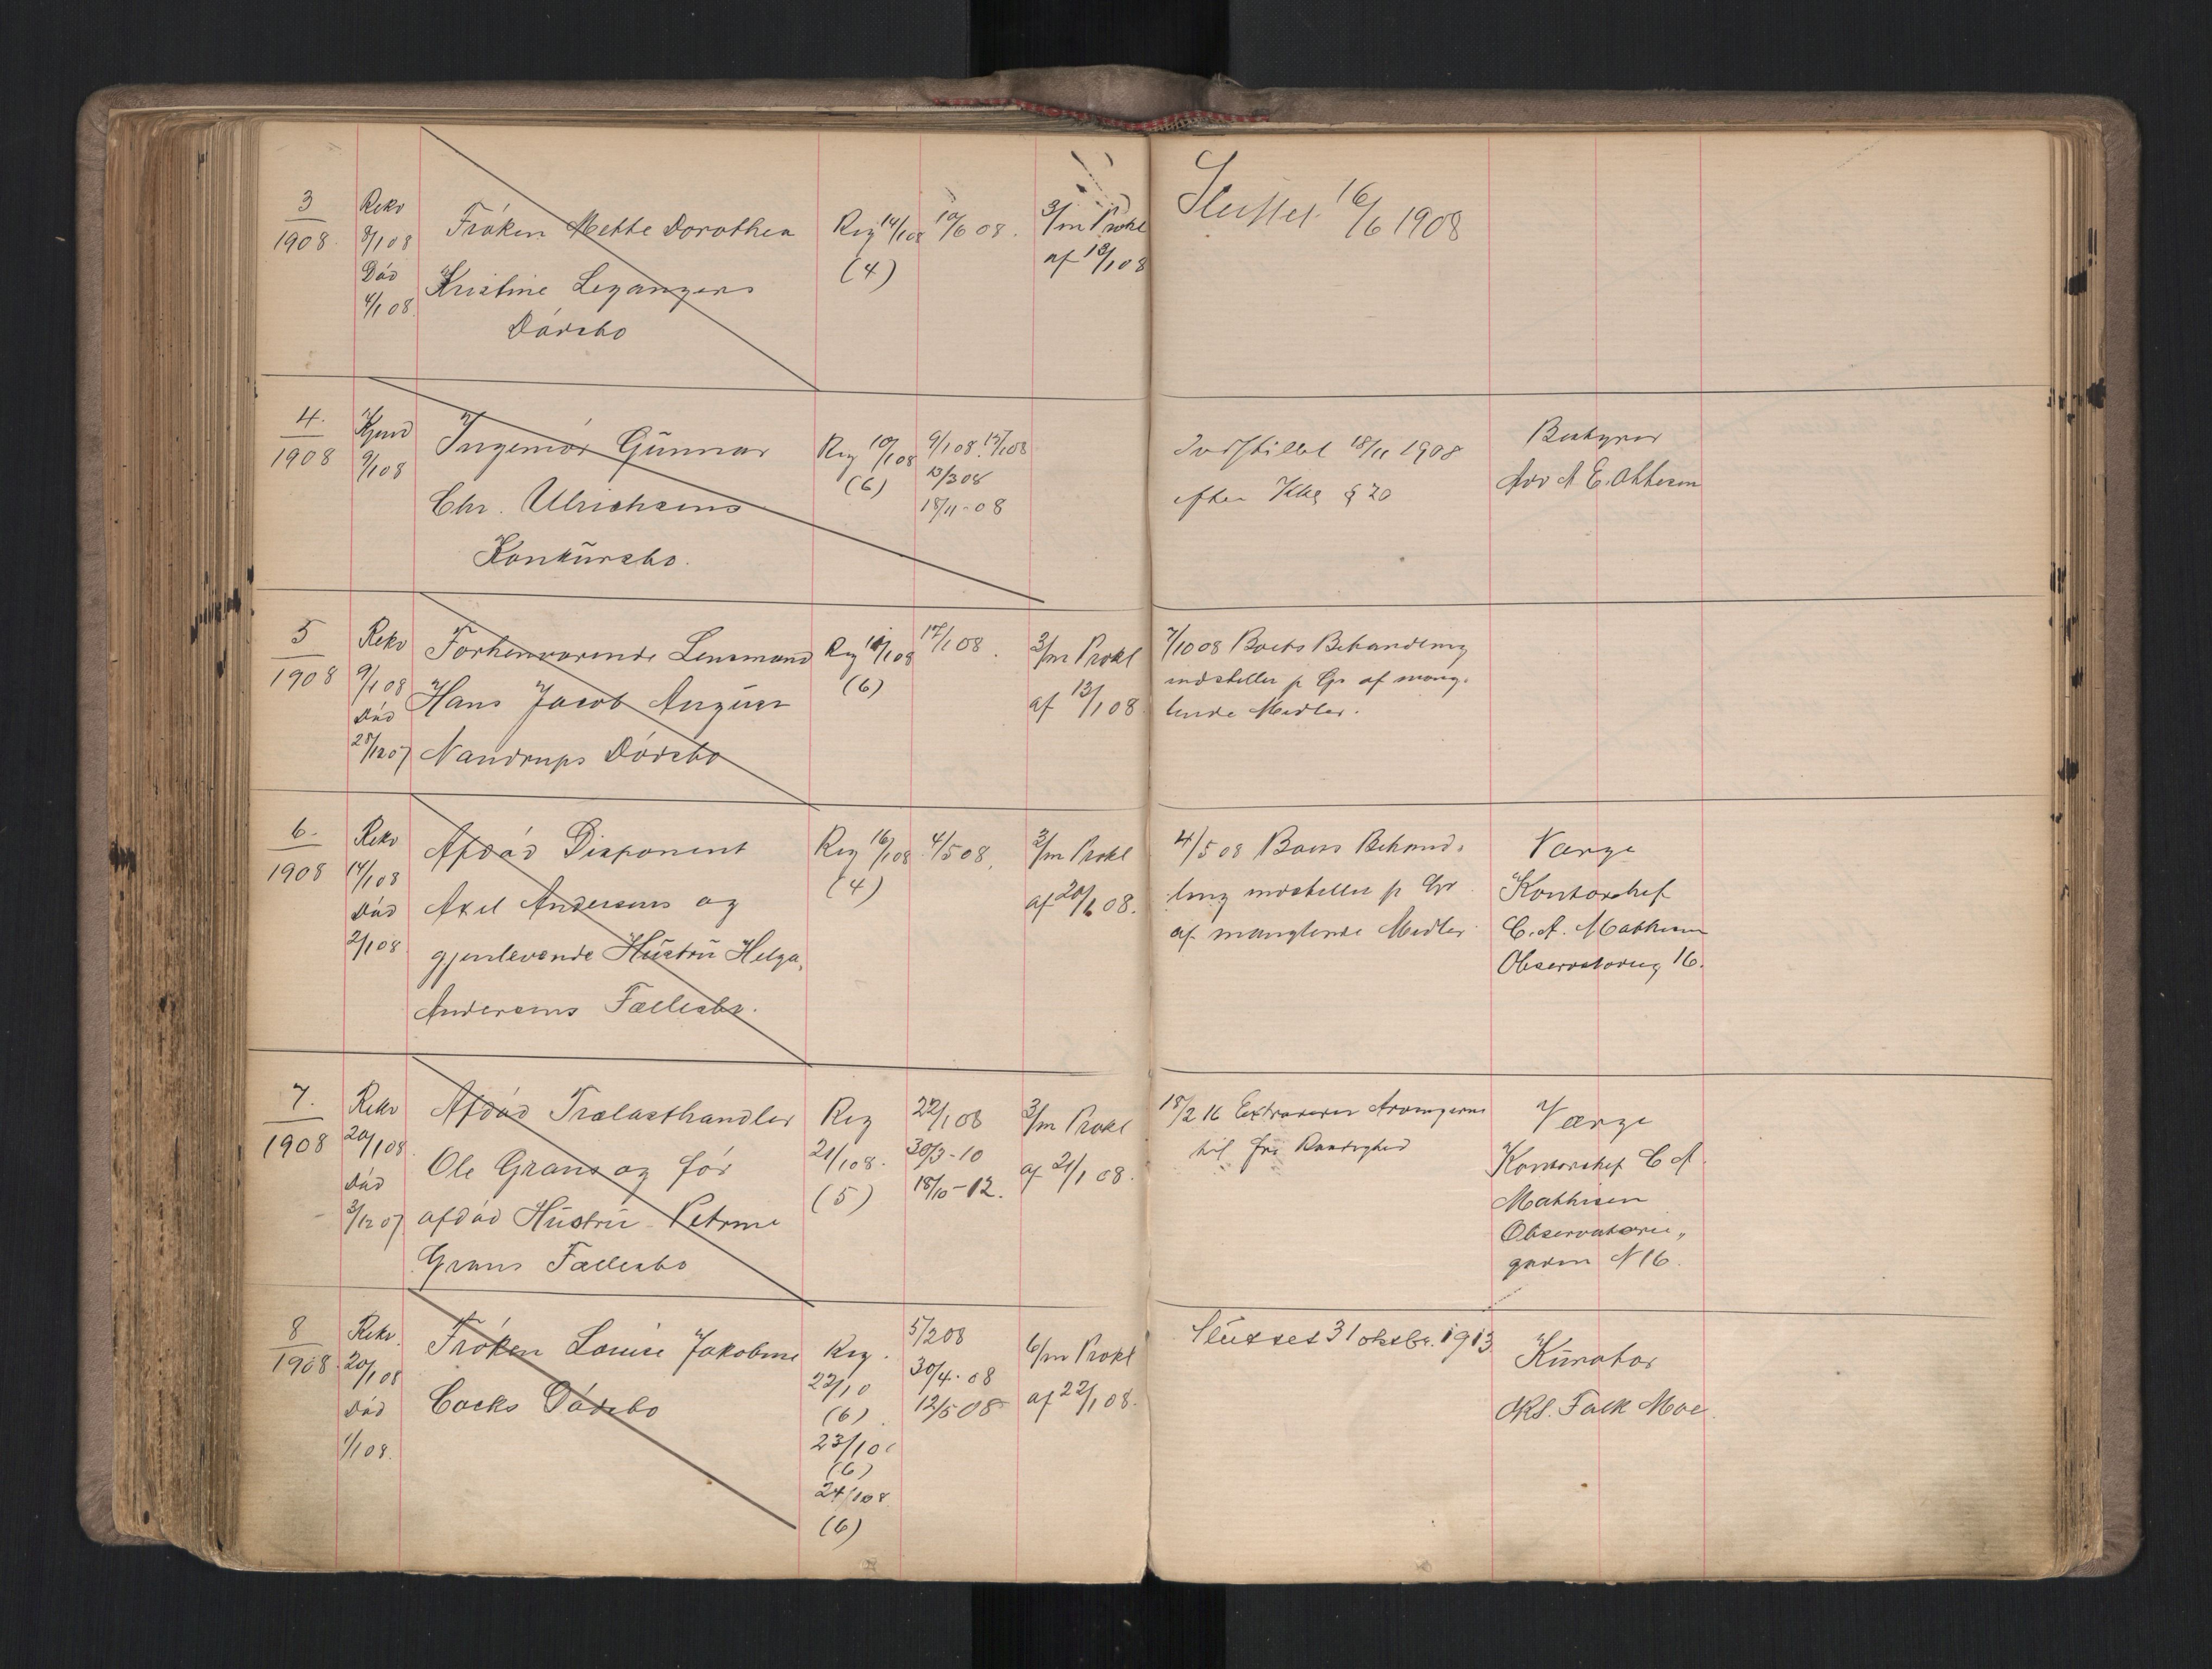 3
1908.
Rekv
8/1 08
Död
4/1 08.
Fröken Mette Dorothea
Kristine Legangers
Dödsbo
Reg 14/1 08
(4)
10/6 08.
3/m Prokl
af 13/1 08
Sluttet 16/6 1908
4.
1908
Kjend
9/1 08
Ingeniör Gunnar
Chr. Ulrichsens
Konkursbo.
Reg 10/1 08
(6)
9/1 08.
13/3 08
18/11-08
Indstillet 18/11 1908
efter Kkl § 20
Bestyrer
Adv
5
1908
Rekv
9/1 08
Död
28/12 07
Forhenværende Lensmand
Hans Jacob August
Nandrups Dödsbo
Reg 11/1 08
(6)
17/1 08.
3/m Prokl
af 13/1 08
7/10 08 Boets Behandling
indstilles p Gr af mang-
lende Midler.
6.
1908
Rekv
14/1 08
Död
2/1 08
Afdöd Disponent
Axel Andersens og
gjenlevende Hustru Helga
Andersens Fællesbo.
Reg 16/1 08
(4)
4/5 08.
3/m Prokl
af 20/1 08.
4/5 08 Boets Behand-
ling indstilles p Gr
af manglende Midler.
Værge
Kontorchef
C. A. Mathisen
Observatoriug 16.
7.
1908
Rekv
20/1 08.
Död
3/12 07
Afdöd Trælasthandler
Ole Grans og för
afdöd Hustru Petrine
Grans Fællesbo
Reg
21/1 08.
(5)
22/1 08
30/3-10
18/10-12.
3/m Prokl
af 21/1 08.
18/2 16 Extraderes Arvingerne
til fri Raadighed
Værge
Kontorchef C A
Mathisen
Observatorie„
gaden N 16.
8
1908.
Rekv.
20/1 08
Död
1/1 08.
Fröken Louise Jakobine
Cocks Dödsbo
Reg.
22/1 0
(6).
23/1 0
(6)
24/1 08
(6)
5/2 08
30/4. 08
12/5 08
6/m Prokl
af 22/1 08.
Sluttet 31 oktbr. 1913
Kurator
OKS. Falk Moe.